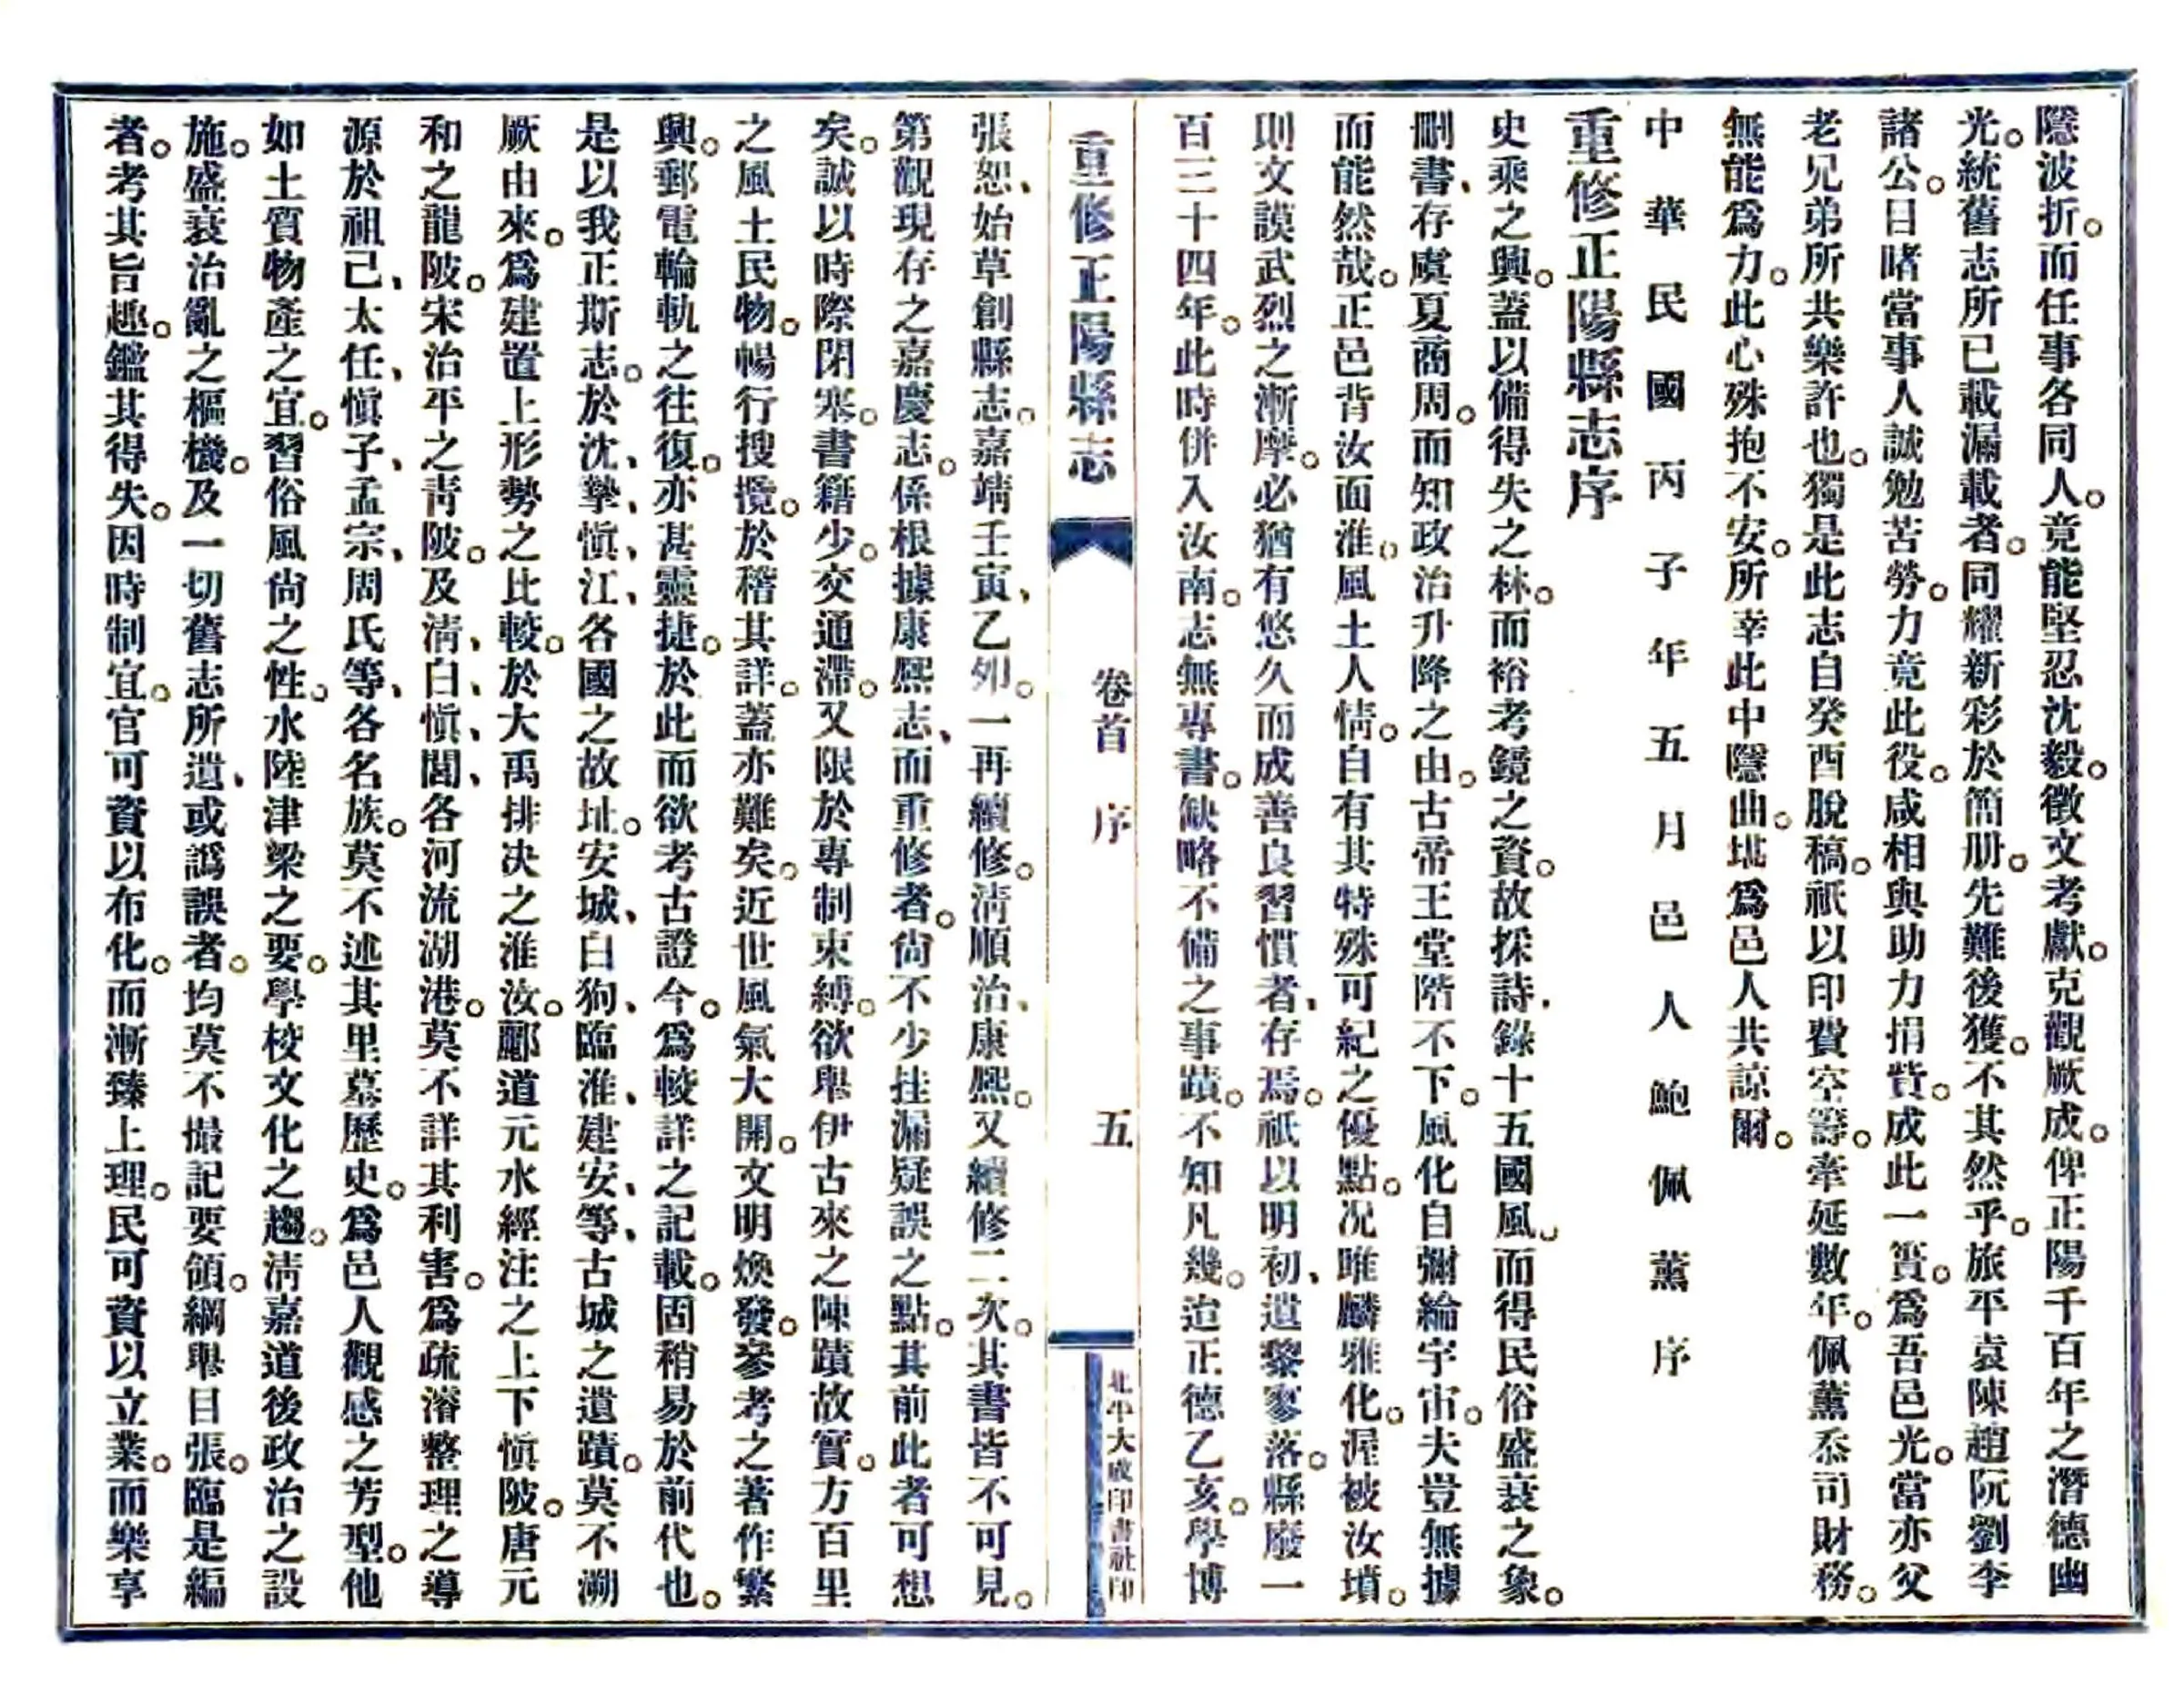 隱波折。而任事各同人。竟能堅忍沈毅。徵文考獻。克觀厥成。俾正陽千百年之潛德幽
光。統舊志所已載漏載者。同耀新彩於簡册。先難後獲。不其然乎。旅平袁陳趙阮劉李
諸公。目睹當事人誠勉苦勞。力竟此役。咸相與助力捐貲。成此一簣。爲吾邑光。當亦父
老兄弟所共樂許也。獨是此志自癸酉脫稿。祇以印費空籌。牽延數年。佩薰忝司財務。
無能爲力。此心殊抱不安。所幸此中隱曲。堪爲邑人共諒爾。
中華民國丙子年五月邑人鮑佩薰序
重修正陽縣志序
史乘之興。蓋以備得失之林。而裕考鏡之資。故採詩、錄十五國風。而得民俗盛衰之象。
删書、存虞夏商周。而知政治升降之由。古帝王堂階不下。風化自彌綸宇宙。夫豈無據
而能然哉。正邑背汝面淮。風土人情。自有其特殊可紀之優點。况睢麟雅化。渥被汝墳。
則文謨武烈之漸摩。必猶有悠久而成善良習慣者、存焉。祇以明初、遺黎寥落。縣廢一
百三十四年。此時併入汝南。志無專書。缺略不備之事蹟。不知凡幾。迨正德乙亥。學博
重修正陽縣志 卷首 序 五 北平大成印書社印
張恕、始草創縣志。嘉靖壬寅、乙夘。一再續修。淸順治、康熙。又續修二次。其書皆不可見。
第觀現存之嘉慶志。係根據康熙志、而重修者。尙不少挂漏疑誤之點。其前此者可想
矣。誠以時際閉塞。書籍少。交通滯。又限於專制束縛。欲舉伊古來之陳蹟故實。方百里
之風土民物。暢行搜攬。於稽其詳。蓋亦難矣。近世風氣大開。文明煥發。參考之著作繁
興。郵電輪軌之往復。亦甚靈捷。於此而欲考古證今。爲較詳之記載。固稍易於前代也。
是以我正斯志。於沈、摯、愼、江、各國之故址。安城、白狗、臨淮、建安、等、古城之遺蹟。莫不溯
厥由來。爲建置上形勢之比較。於大禹排决之淮汝。酈道元水經注之上下愼陂。唐元
和之龍陂。宋治平之靑陂。及淸、白、愼、閭、各河流湖港。莫不詳其利害。爲疏濬整理之導
源於祖己、太任、愼子、孟宗、周氏等、各名族。莫不述其里墓歷史。爲邑人觀感之芳型。他
如土質物產之宜。習俗風尙之性。水陸津梁之要。學校文化之趨。淸嘉道後政治之設
施。盛衰治亂之樞機。及一切舊志所遺、或譌誤者。均莫不撮記要領。綱舉目張。臨是編
者。考其旨趣。鑑其得失。因時制宜。官可資以布化。而漸臻上理。民可資以立業。而樂享